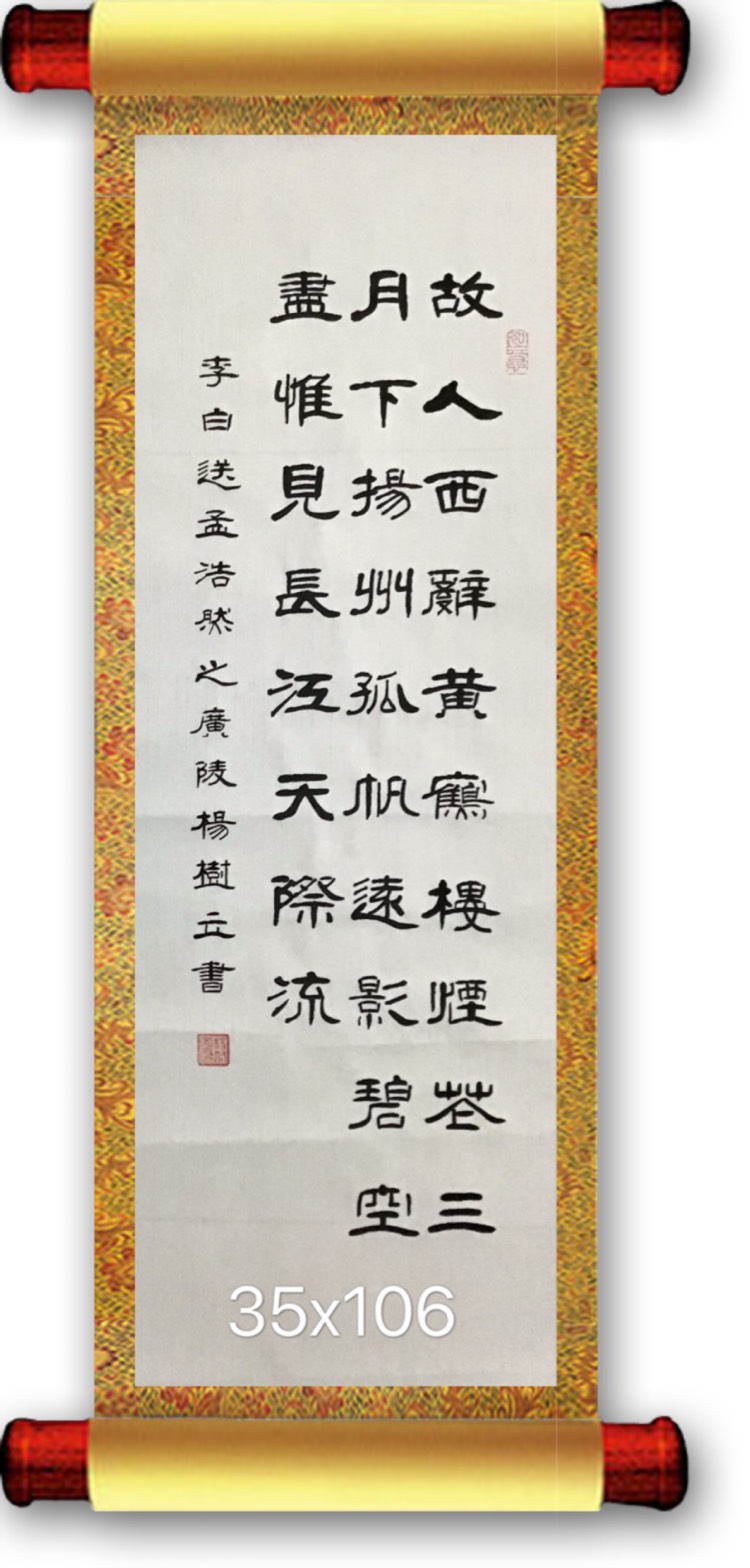 故人西辭黃鶴樓煙花三
月下揚州孤帆遠影碧空
盡惟見長江天際流
李白送孟浩然之廣陵楊樹立書
35x106